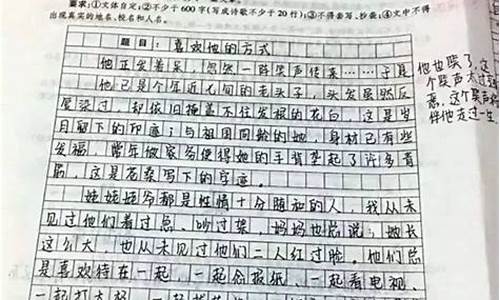 要求:①文体自定;②不少于600字(写成诗歌不少于20行);③不得套写、抄袭;④文中不得
出现真实的地名、校名和人名。
题目:喜欢他的方式
他正发着呆,忽然一阵笑声传来……于是
他已是个年近七旬的老头子,头发虽然反
复染过,却依旧掩盖不住发根的花白,这是岁
月留下的印迹;与祖国同龄的她,身材已有些
发福,常年做家务使得她的手背垄起了许多青
筋,这是苍桑写下的字迹。
姥姥姥爷都是性情十分随和的人,我从未
见过他们着过急,吵过架,妈妈也总说:她长
这么大,也从未见过他们二人红过脸。他们总
是喜欢待在一起,一起念报纸、一起看电视、
一起打太极
他也笑了,这
个笑声太过
这个笑声
伴他走过一生